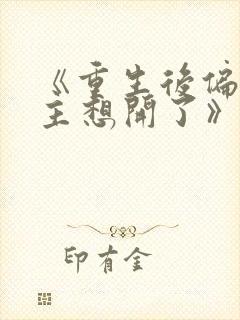 《重生後偏
主想開了》
印有金